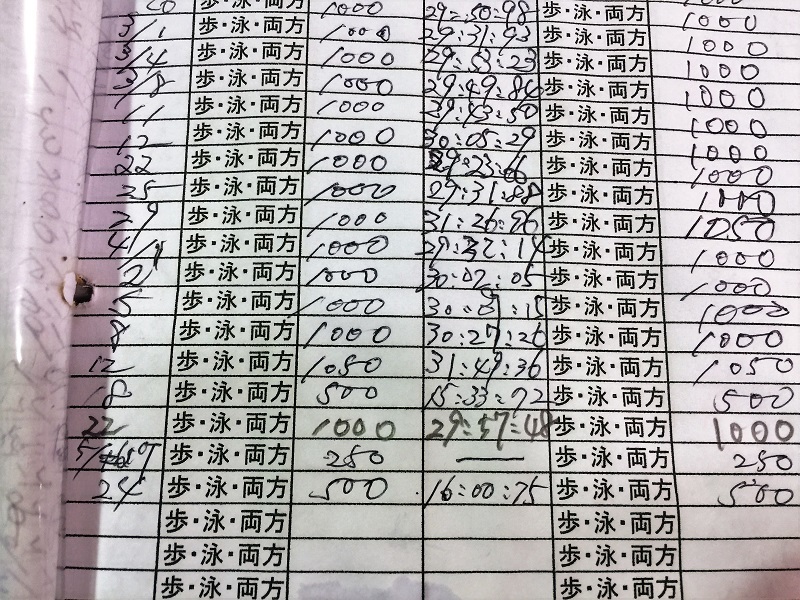 20 歩・泳・両方 1000 29:50:98 歩・泳・両方 1000
3/1 歩・泳・両方 1000 29:31:93 歩・泳・両方 1000
3/4 歩・泳・両方 1000 29:53:23 歩・泳・両方 1000
3/8 歩・泳・両方 1000 29:49:86 歩・泳・両方 1000
11 歩・泳・両方 1000 29:43:50 歩・泳・両方 1000
12 歩・泳・両方 1000 30:05:29 歩・泳・両方 1000
22 歩・泳・両方 1000 29:23: 歩・泳・両方 1000
25 歩・泳・両方 1000 29:31:88 歩・泳・両方 1000
29 歩・泳・両方 1000 31:26:96 歩・泳・両方 1050
4/1 歩・泳・両方 1000 29:32:14 歩・泳・両方 1000
2 歩・泳・両方 1000 30:02:05 歩・泳・両方 1000
15 歩・泳・両方 1000 30: :15 歩・泳・両方 1000
8 歩・泳・両方 1000 30:27:26 歩・泳・両方 1000
12 歩・泳・両方 1050 31:49:36 歩・泳・両方 1050
18 歩・泳・両方 500 15:33:72 歩・泳・両方 500
22 歩・泳・両方 1000 29:57:48 歩・泳・両方 1000
歩・泳・両方 250 — 歩・泳・両方 250
24 歩・泳・両方 500 16:00:75 歩・泳・両方 500
歩・泳・両方 歩・泳・両方
歩・泳・両方 歩・泳・両方
歩・泳・両方 歩・泳・両方